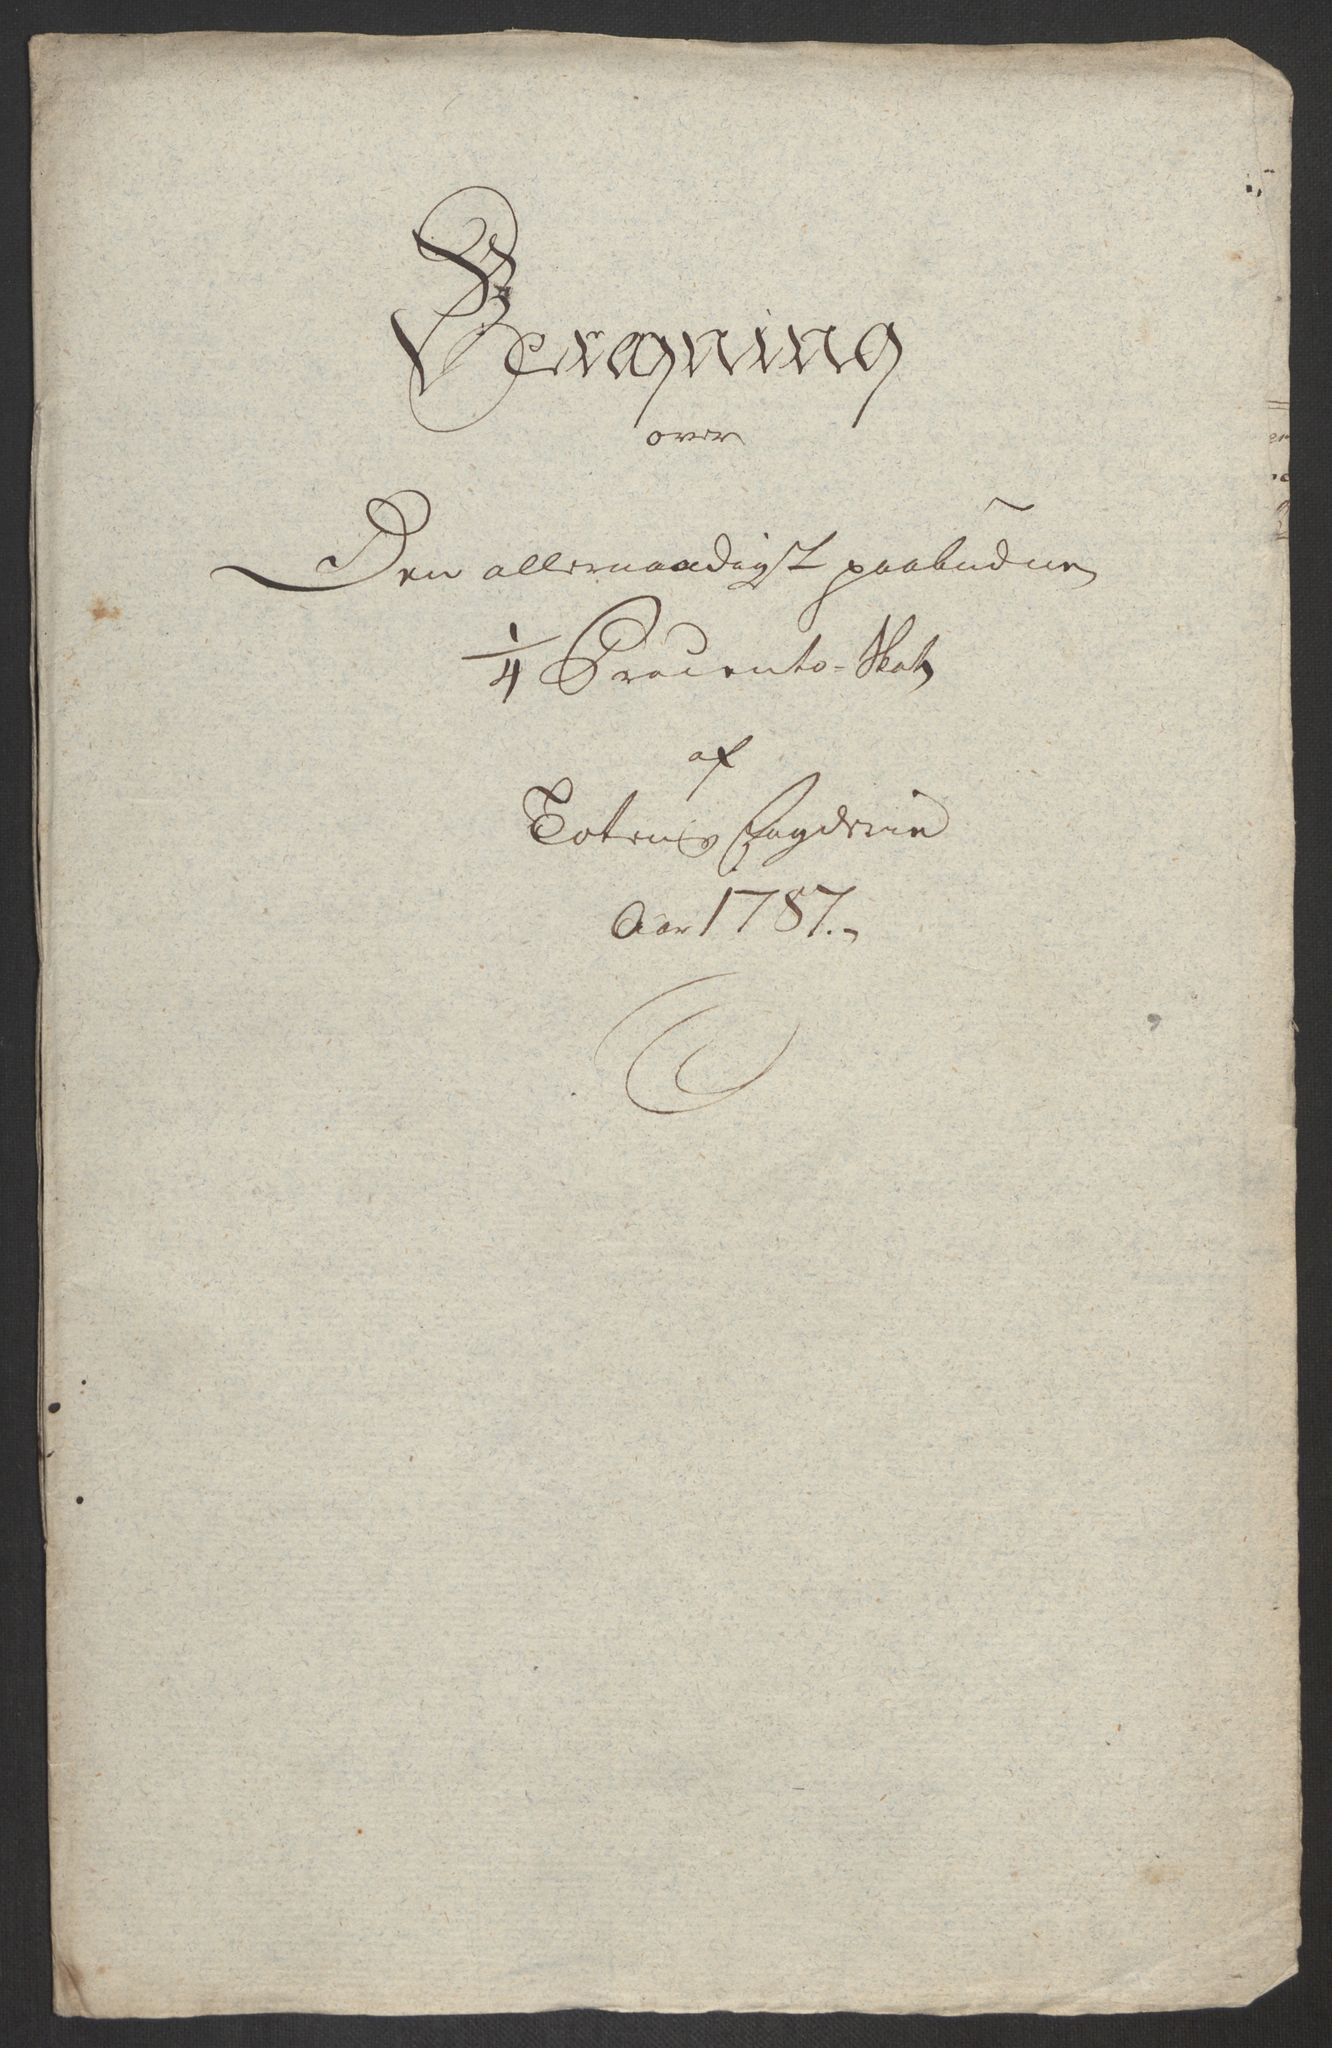 Beregning
over
Den allernaadigst paabudne
1/4 Procento-Skat
af
Totens Fogderie
Aar 1787.